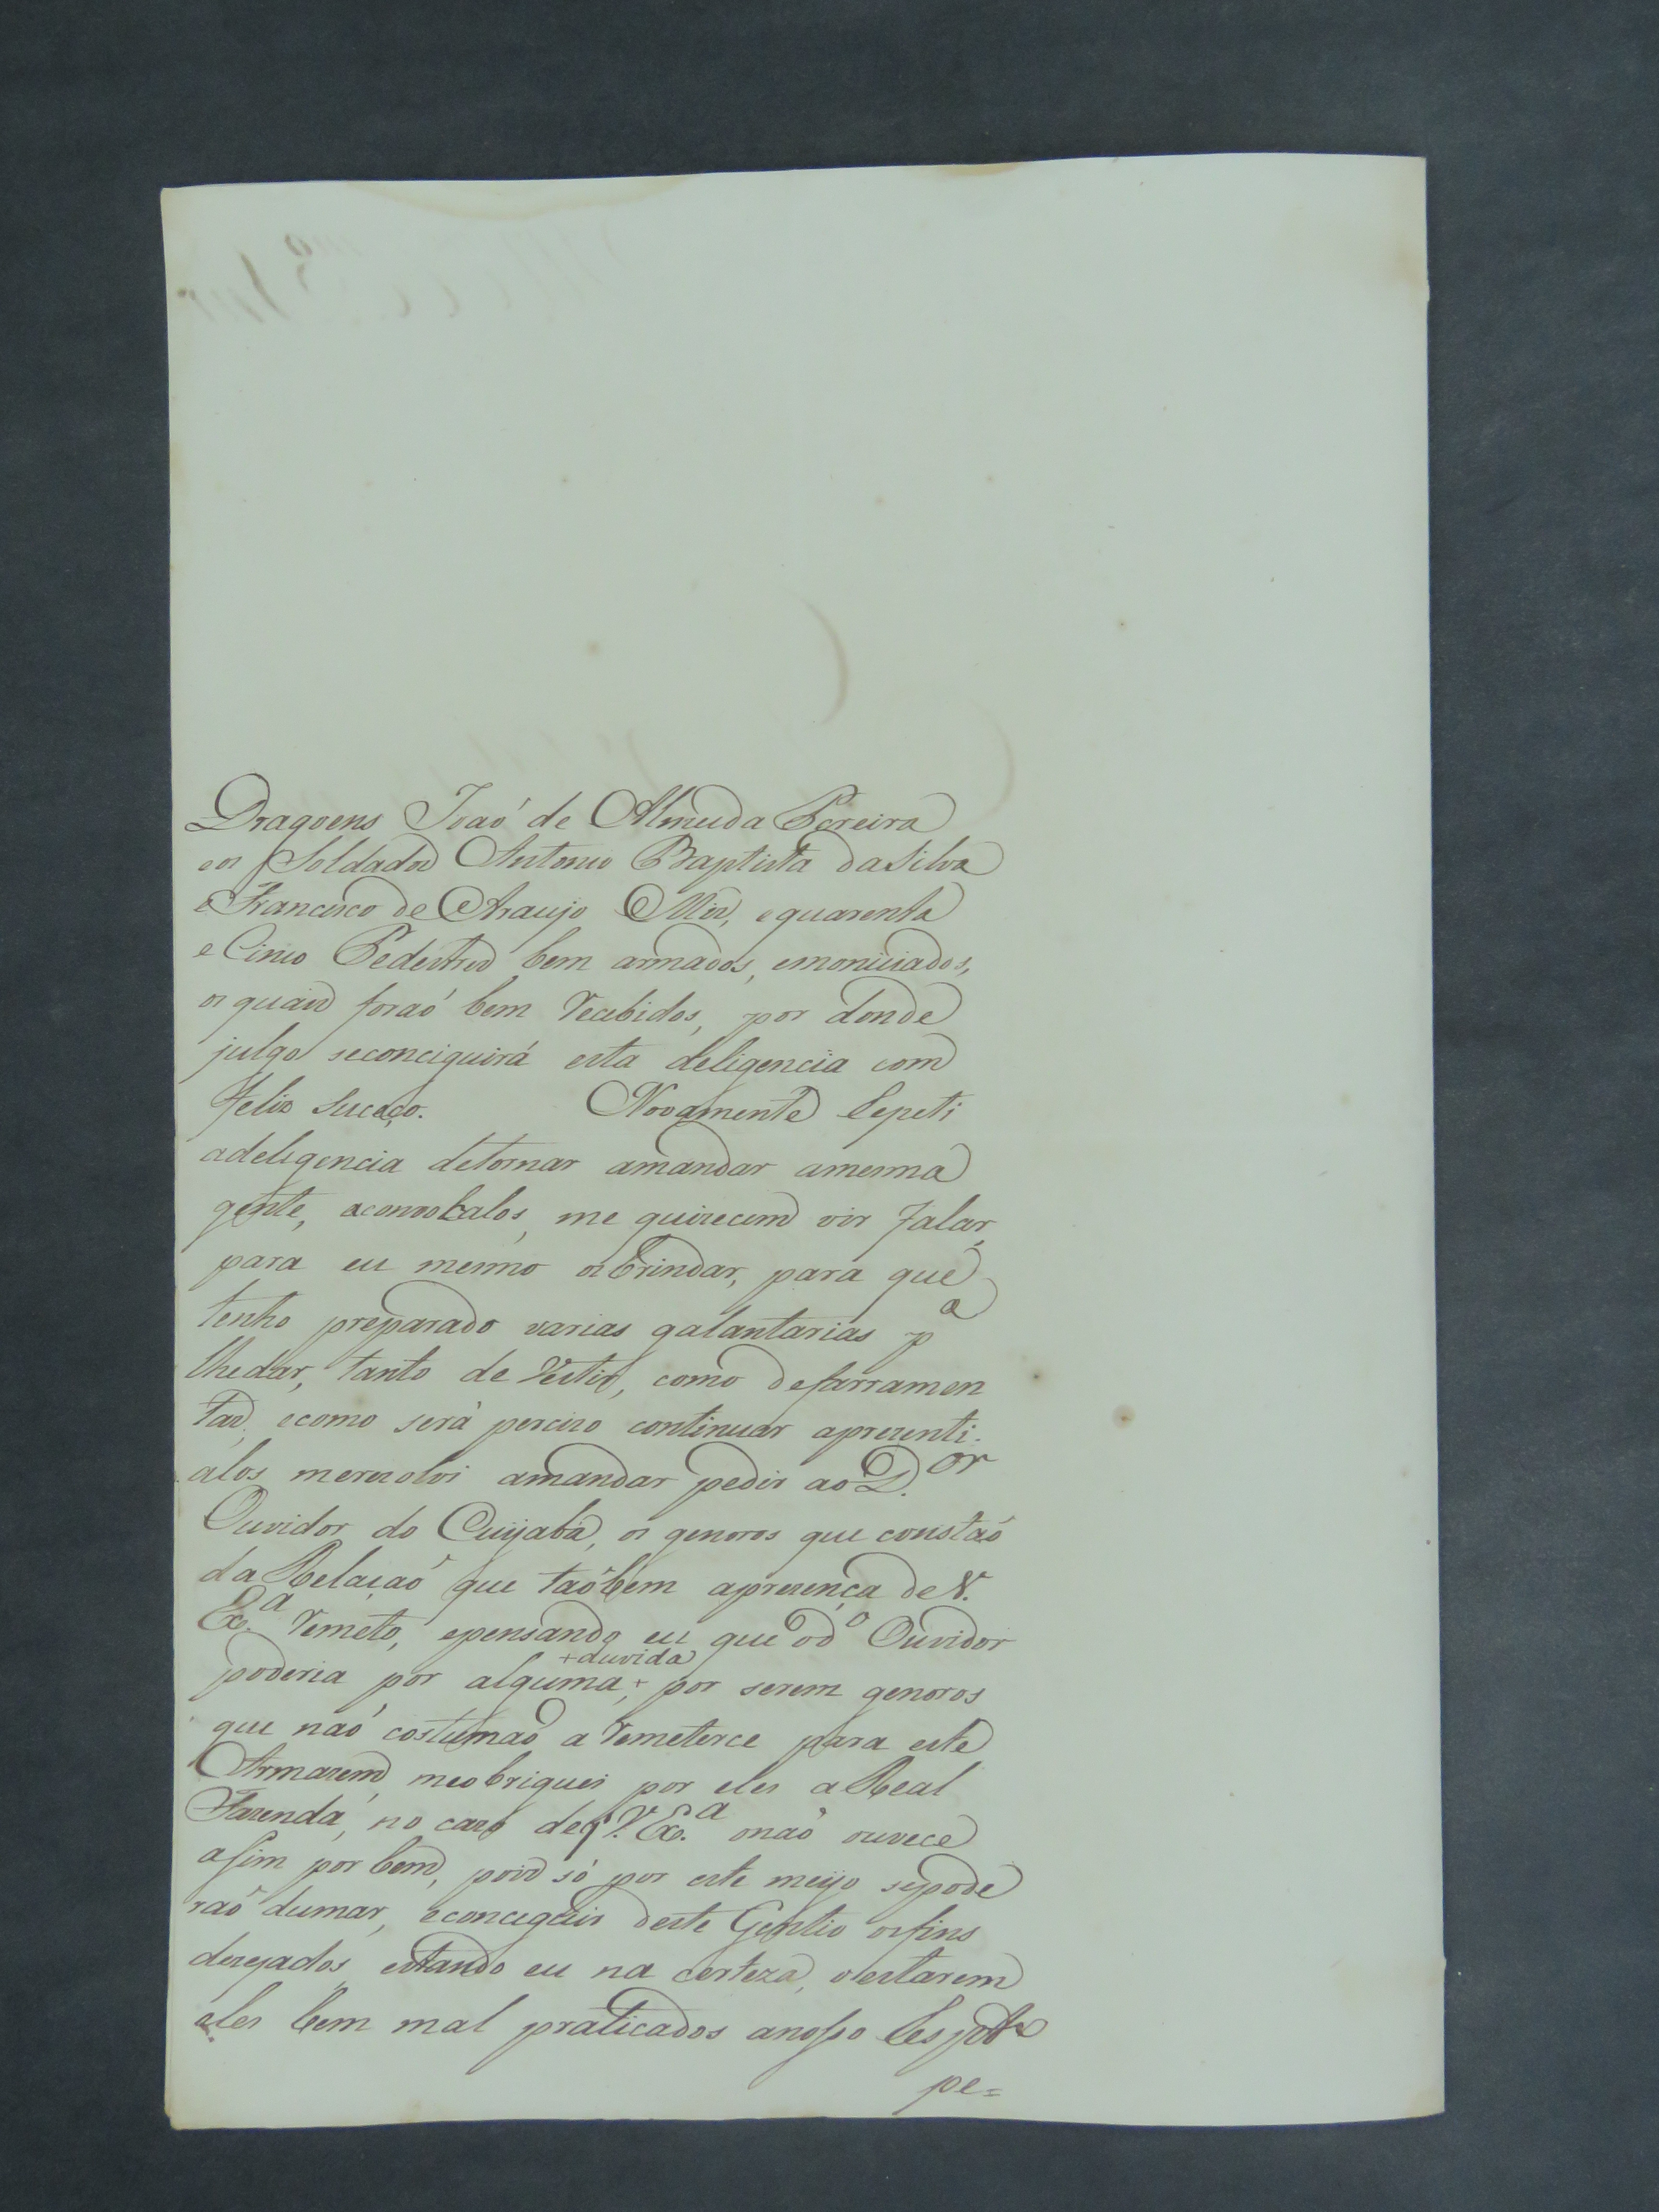 Dragoens Joaó de Almeida Pereira
eos Soldados Antonio Baptista daSilva
e Francisco de Araujo Mis, e quarenta
e Cinco Pedestres bem armados, emoniciados,
os quais foraó bem recebidos, por donde
julgo seconciguirá esta deligencia com
feliz suceço. Novamente repeti
adeligencia detornar amandar amesma
gente, aconvocalos, me quizecem vir falar,
para eu mesmo os brindar, para que
tenho preparado varias galantarias pª
lhedar, tanto de Vestir, como deferramen
tas, ecomo será percizo continuar aprezenti-
alos merezolvi amandar pedir ao D.or
Ouvidor do Cuyabá, os generos que constaõ
da Relaçaõ que taõbem aprezença de V.
Ex.ª remeto, epensando eu que od.º Ouvidor
poderia por alguma + por serem generos
+ duvida
que naõ costumaõ a remeterce para este
Armazem, meobriguei por eles a Real
Fazenda, no cazo deq V. Ex.ª onaõ ouvece
asim por bem, pois só por este meyo sepode
raõ dumar, econceguir deste Gentio osfins
dezejados, estando eu na certeza, oestarem
eles bem mal praticados anosso Respt.º
pe=